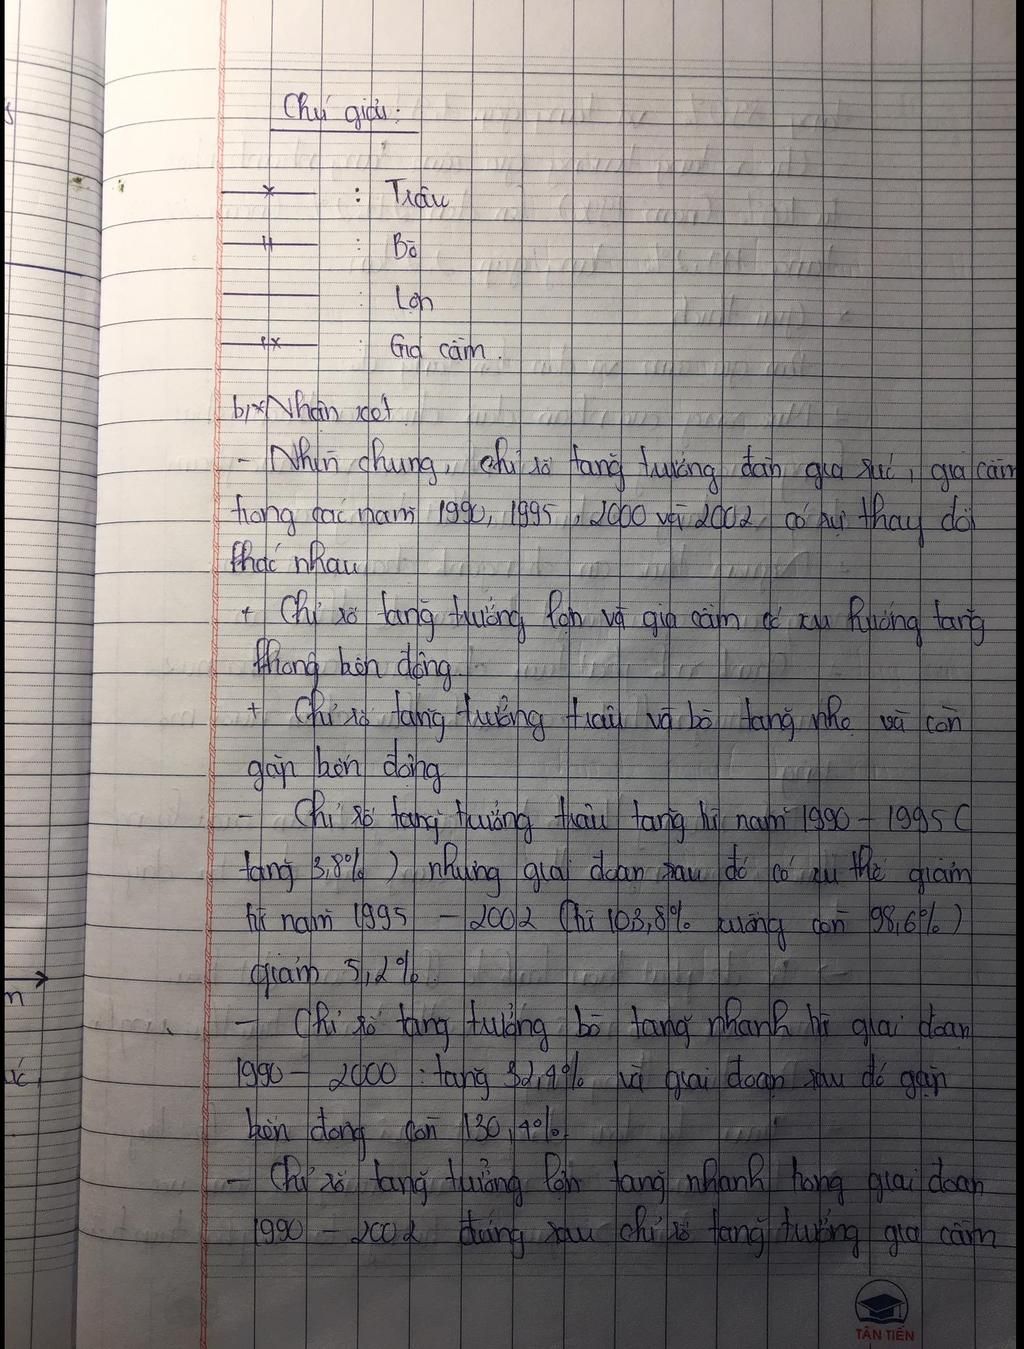 Chú giải:
: Trâu
: Bò
: Lợn
: Gia cầm.
b, * Nhận xét
- Nhìn chung, chỉ số tăng trưởng đàn gia súc, gia cầm
trong các năm 1990, 1995, 2000 và 2002 có sự thay đổi
khác nhau
+ Chỉ số tăng trưởng lợn và gia cầm có xu hướng tăng
không biến động.
+ Chỉ số tăng trưởng trâu và bò tăng nhẹ và còn
gặp biến động
- Chỉ số tăng trưởng trâu tăng từ năm 1990 - 1995 (
tăng 3,8%) nhưng giai đoạn sau đó có xu thế giảm
từ năm 1995 - 2002 (từ 103,8% xuống còn 98,6%)
giảm 5,2%.
- Chỉ số tăng trưởng bò tăng nhanh từ giai đoạn
1990 - 2000 : tăng 32,4% và giai đoạn sau đó gặp
biến động còn 130,4%
- Chỉ số tăng trưởng lợn tăng nhanh trong giai đoạn
1990 - 2002 đứng sau chỉ số tăng trưởng gia cầm
TÂN TIẾN